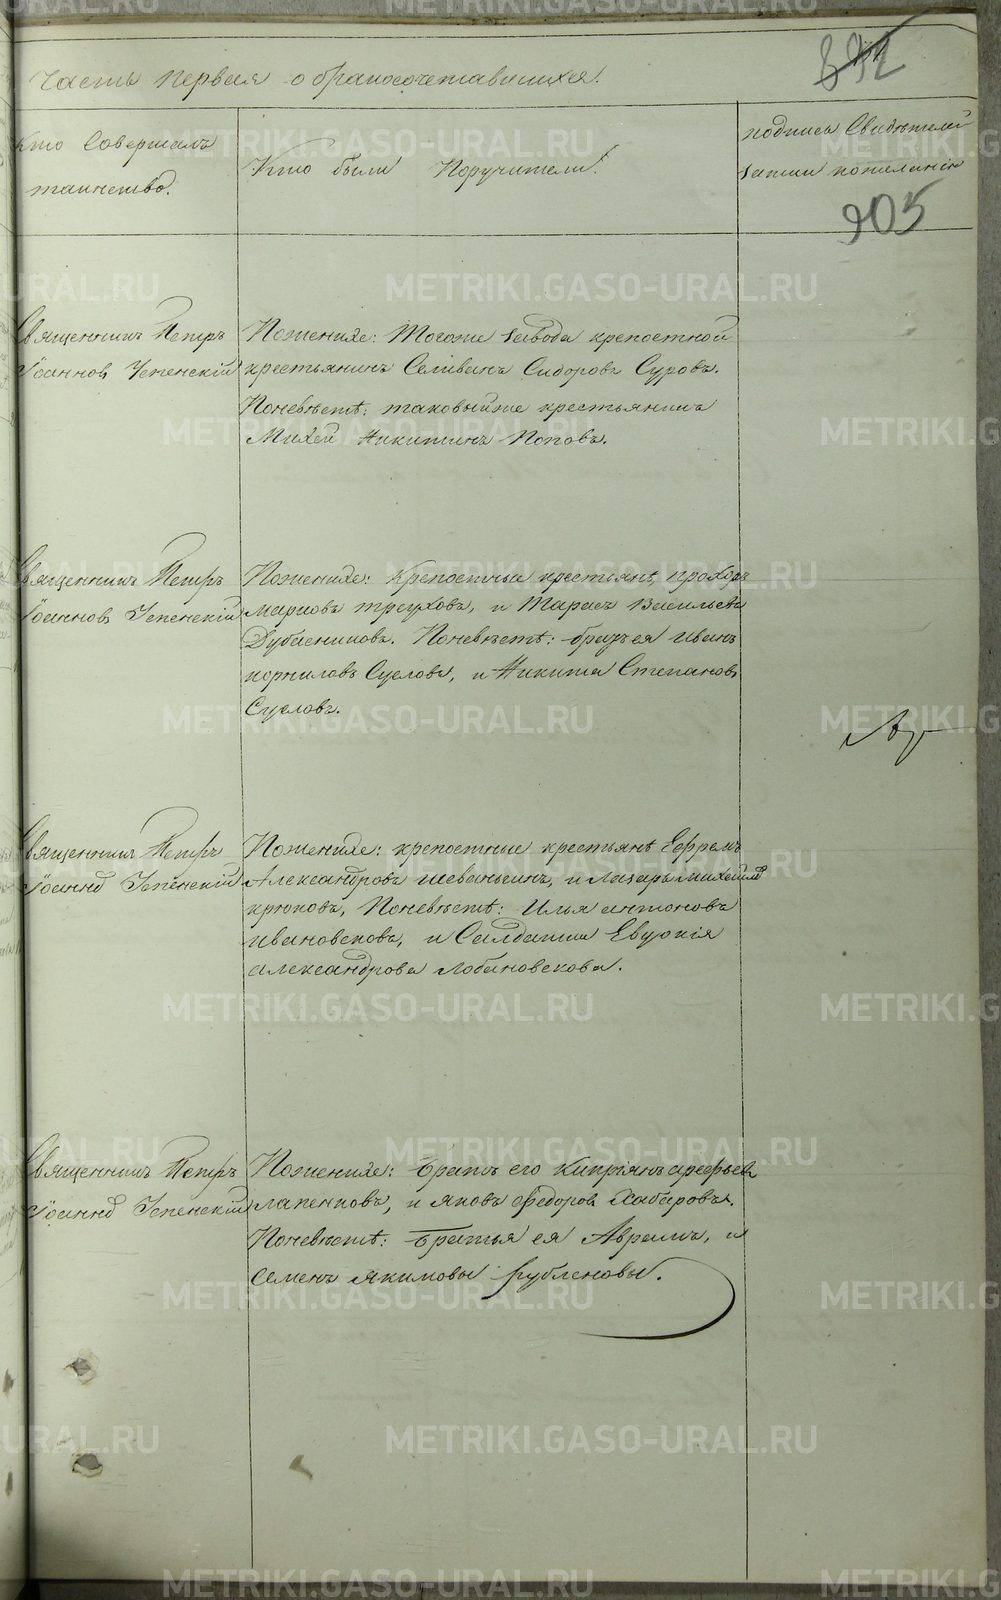 Часть первая о бракосочетавшихся.
832
Кто Совершалъ
таинство.
Кто были Поручители.
подписъ Свидѣтелей
записи пожеланію
905
Священникъ Петръ
Іоанновъ Успенскій
Пожениxе: Тогоже завода крепостной
крестьянинъ Селиванъ Сидоровъ Суровъ.
Поневѣстѣ: таковыйже крестьянинъ
Михей Никитинъ Поповъ.
Священникъ Петръ
Іоанновъ Успенскій
Пожениxе: Крепостныи крестьянѣ, прохоръ
марковъ треуховъ, и Тарасъ Васильевъ
Дубасниковъ. Поневѣстѣ: братья иванъ
корниловъ Сусловъ, и Никита Степановъ
Сусловъ.
Священникъ Петръ
Іоаннов Успенскій
Пожениxе: крепостные крестьянѣ Ефремъ
Александровъ и Лазарь
крюковъ, Поневѣстѣ: Илья антоновъ
ивановсковъ, и Салдатка Евдокія
александрова Лобановскова.
Священникъ Петръ
Іоаннов Успенскій
Пожениxе: братъ его Кипріянъ арефьевъ
лапенковъ, и яковъ Федоровъ Хабаровъ.
Поневѣстѣ: братья ея Аврамъ, и
Семенъ якимовы рублеловы.
METRIKI.GASO-URAL.RU